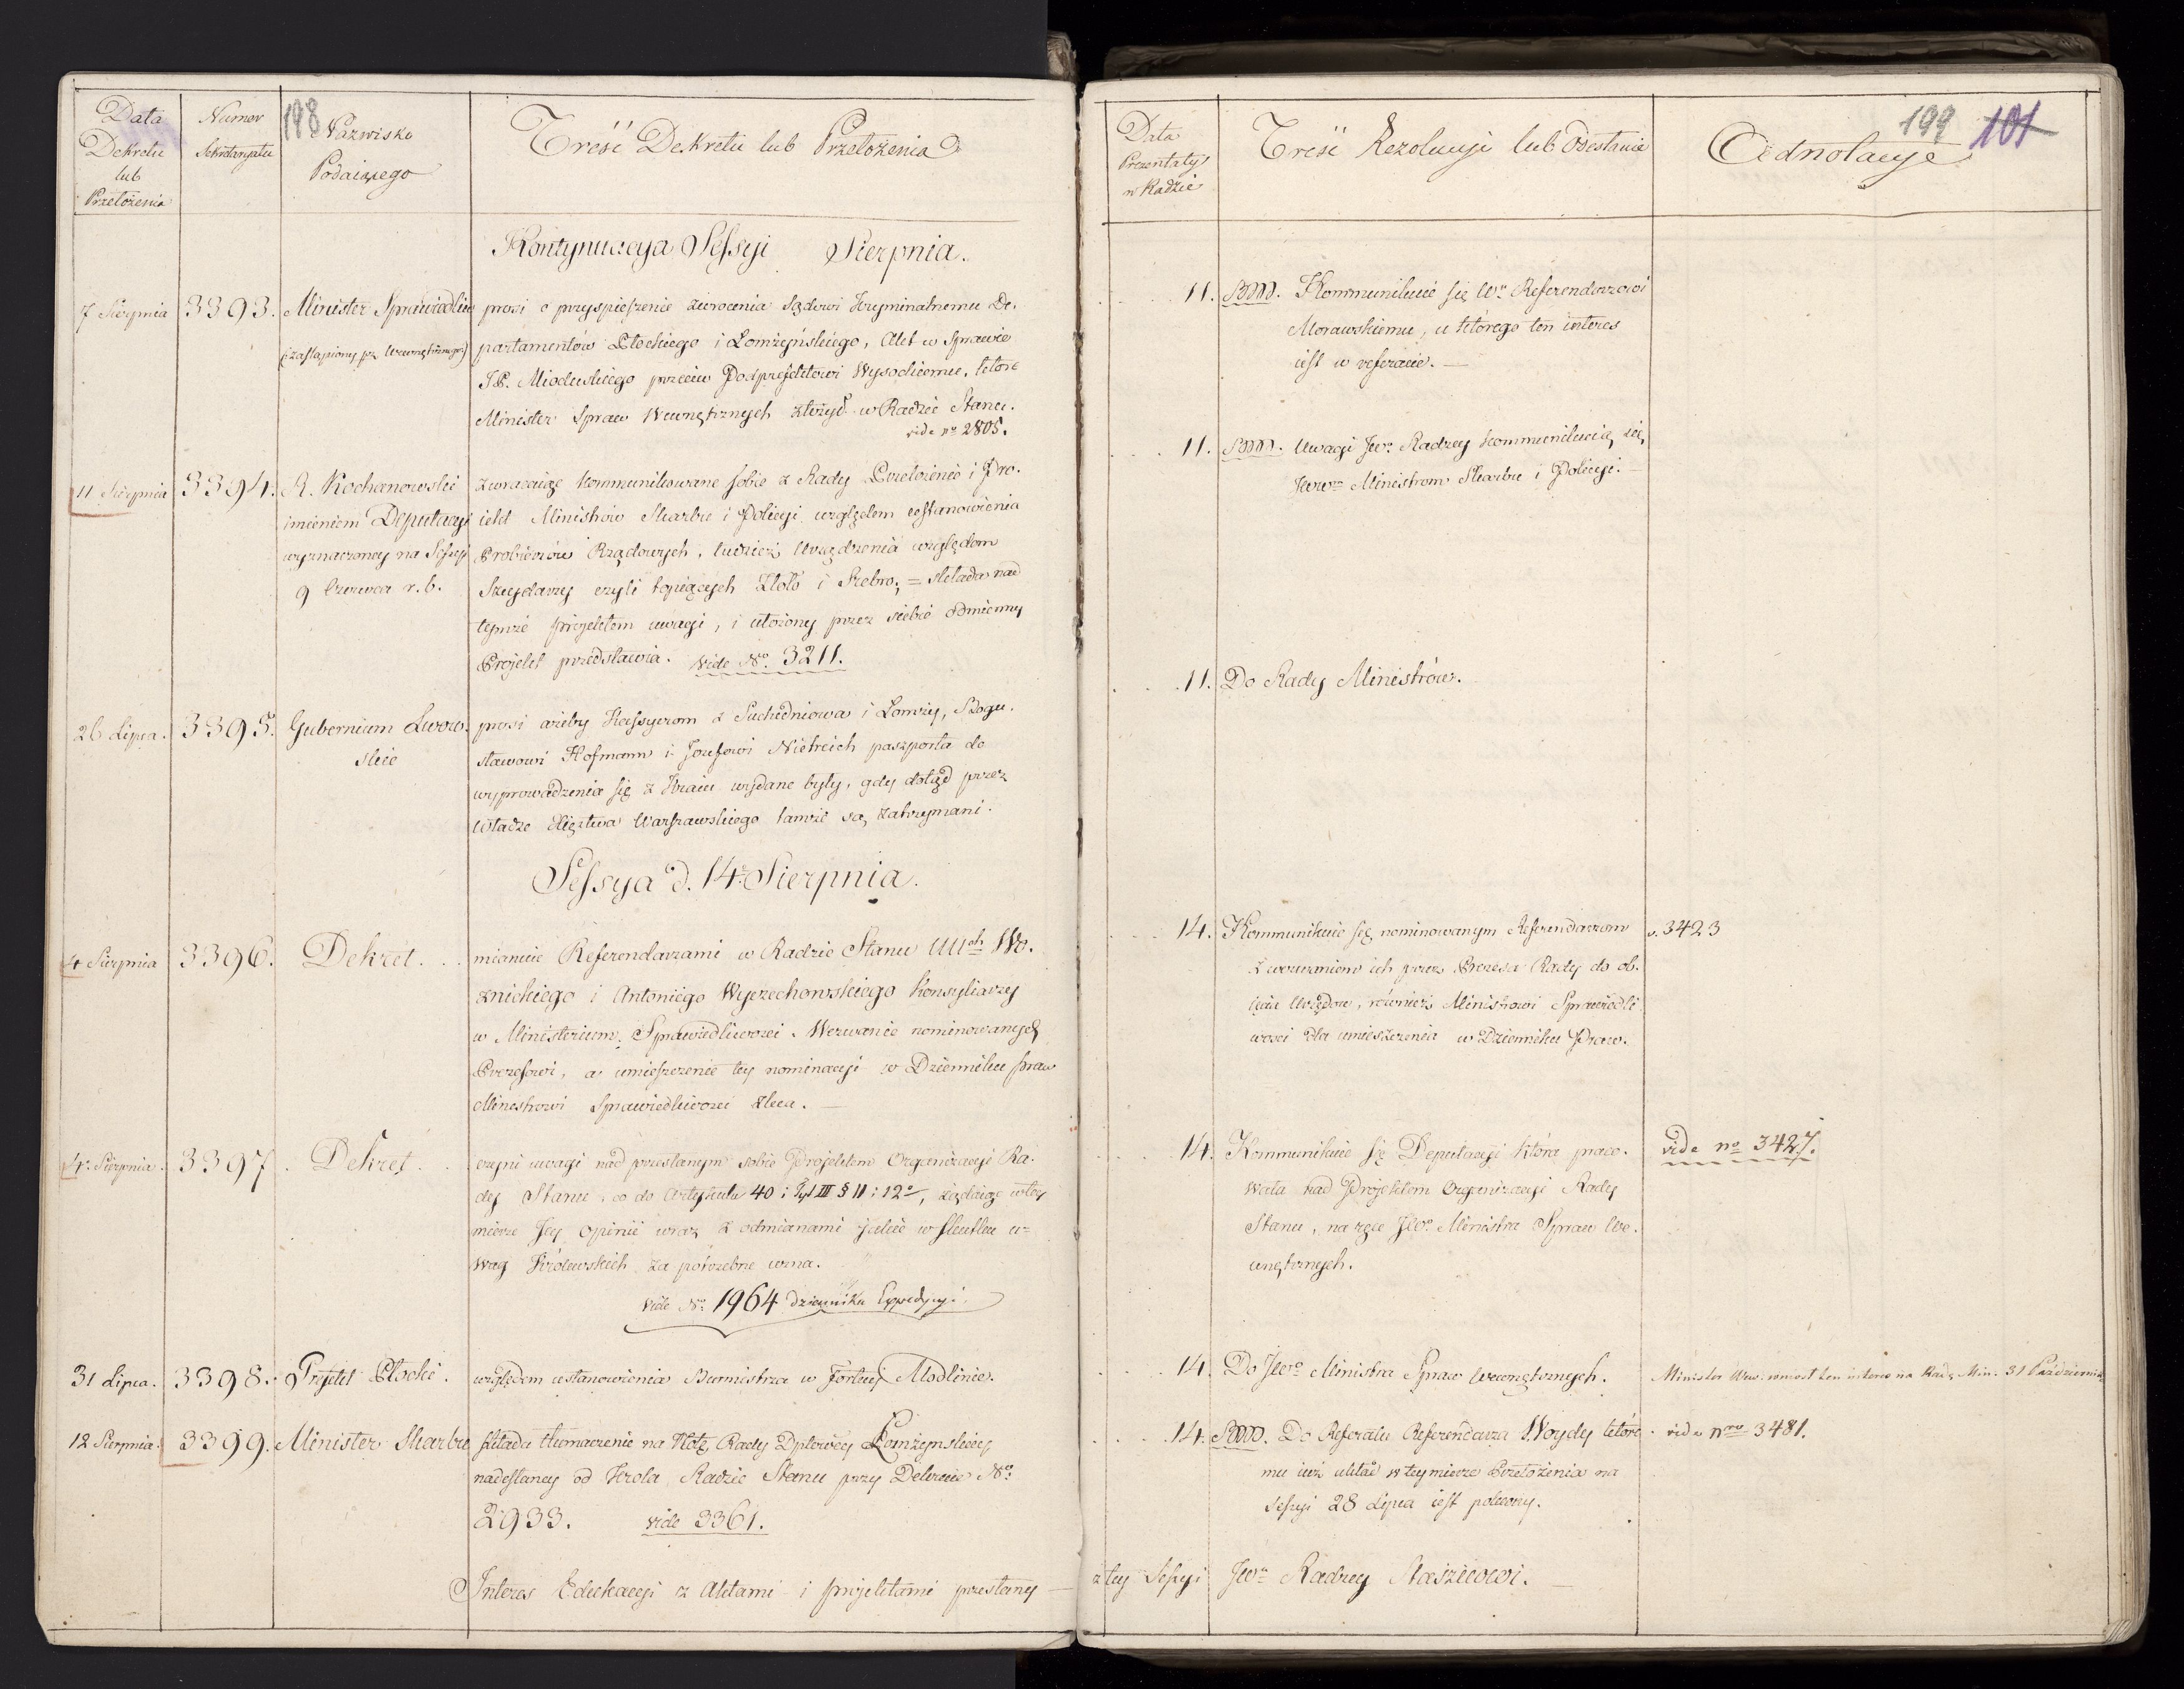 Data
Dekretu
lub
Przełożenia
Numer
Sekretaryatu
198
Nazwisko
Podaiącego
Treść Dekretu lub Przełożenia
Kontynuacya Sessyi Sierpnia.
7 Sierpnia 3393. Minister Sprawiedliw
(zastąpiony pz. Wewnętrznego)
prosi o przyspieszenie zwrocenia Sądowi Kryminalnemu De-
partamentów Płockiego i Łomżyńskiego, Akt w Sprawie
JP. Mioduskiego przeciw Podprefektowi Wysockiemu, które
Minister Spraw Wewnętrznych złożył w Radzie Stanu.
vide no 2805.
11 Sierpnia 3394. R. Kochanowski
imieniem Deputacyi
wyznaczoney na Sessyi
9 Czerwca r. b.
zwracaiąc kommunikowane sobie z Rady Przełożenie i Pro-
iekt Ministrów Skarbu i Policyi względem ustanowienia
Probierzów Rządowych, tudzież Urządzenia względem
Szeydarzy czyli topiących Złoto i Srebro; = składa nad
tymże projektem uwagi, i ułożony przez siebie odmienny
Projekt przedstawia. vide No. 3211.
26 Lipca. 3395. Gubernium Lwow-
skie
prosi ażeby Kassyerom z Suchedniowa i Łomży, Bogu-
sławowi Hofmann i Jozefowi Nietreich paszporta do
wyprowadzenia się z Kraiu wydane były, gdy dotąd przez
Władze Xięztwa Warszawskiego tamże są zatrzymani.
Sessya d. 14. Sierpnia.
4 Sierpnia 3396. Dekret.
mianuie Referendarzami w Radzie Stanu UUch Wo-
znickiego i Antoniego Wyczechowskiego Konsyliarzy
w Ministerium Sprawiedliwości. Wezwanie nominowanych
Prezesowi, a umieszczenie tey nominacyi w Dzienniku praw
Ministrowi Sprawiedliwości zleca.
4. Sierpnia. 3397. Dekret.
czyni uwagi nad przesłanym sobie Projektem Organizacyi Ra-
dy Stanu, co do Artykułu 40 i Tyt III § 11 i 12o, żądaiąc w tey
mierze Jey opinii wraz z odmianami jakie w skutku u-
wag Królewskich za potrzebne uzna.
vide No. 1964 dziennika Expedycyi.
31 Lipca. 3398. Prefekt Płocki.
względem ustanowienia Burmistrza w Fortecy Modlinie.
12 Sierpnia. 3399. Minister Skarbu
składa tłomaczenie na Notę Rady Dptowey Łomżynskiey
nadesłaney od Krola Radzie Stanu przy Dekrecie No.
2933. vide 3361.
Interes Edukacyi z Aktami i projektami przesłany
Data
Prezentaty
w Radzie
Treść Rezolucyi lub Odesłanie
Adnotacye
199 101
11. Kommunikuie się Wo Referendarzowi
Morawskiemu, u którego ten interes
iest w referacie.
11. Uwagi Jwo Radzcy kommunikuią się
Jwwm Ministrom Skarbu i Policyi.
11. Do Rady Ministrów.
14. Kommunikuie się nominowanym Referendarzom v. 3423
z wezwaniem ich przez Prezesa Rady do ob-
ięcia Urzędow, również Ministrowi Sprawiedli-
wości dla umieszczenia w Dzienniku Praw.
14. Kommunikuie się Deputacyi która praco- vide no 3427.
wała nad Projektem Organizacyi Rady
Stanu, na ręce Jwo Ministra Spraw We-
wnętrznych.
14. Do Jwo Ministra Spraw Wewnętrznych. Minister Wew. wniosł ten interes na Radę Min. 31 Październik
14. Do Referatu Referendarza Woydy które- vide nro 3481.
mu iuż układ w tey mierze Przełożenia na
Sessyi 28 Lipca iest polecony.
z tey Sessyi Jwo Radzcy Staszicowi.